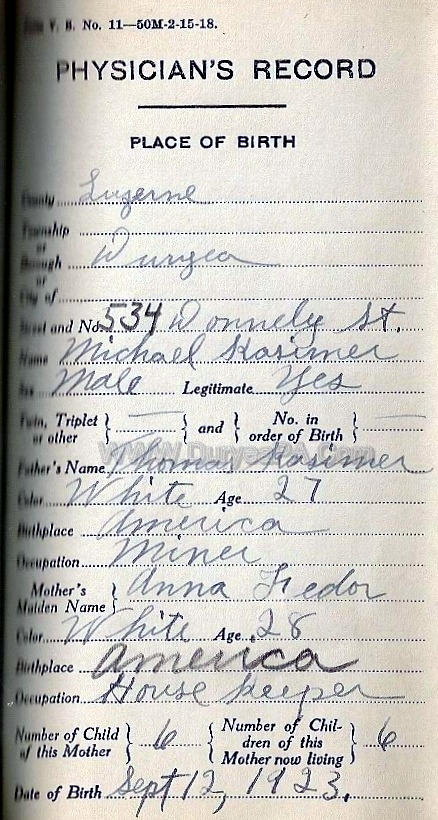 V. B. No. 11—50M-2-15-18.
PHYSICIAN'S RECORD
PLACE OF BIRTH
County Luzerne
Township
or
Borough Duryea
or
City of
Street and No. 534 Donnely St.
Name Michael Kasimer
Sex Male Legitimate Yes
Twin, Triplet or other } — { and } No. in order of Birth } —
www.DuryeaPa.com
Father's Name Thomas Kasimer
Color White Age 27
Birthplace America
Occupation Miner
Mother's Maiden Name } Anna Fedor
Color White Age 28
Birthplace America
Occupation House Keeper
Number of Child of this Mother } 6 { Number of Children of this Mother now living } 6
Date of Birth Sept 12, 1923.